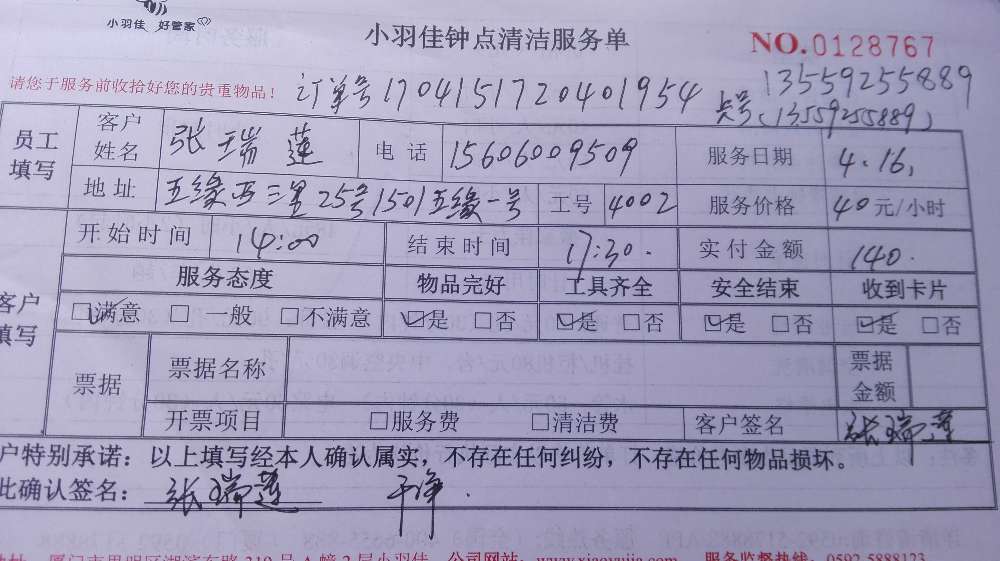 小羽佳 好管家
小羽佳钟点清洁服务单
NO.0128767
请您于服务前收拾好您的贵重物品!
订单号1704151720401954
13559255889
卡号(13559255889)
员工填写
客户姓名 张瑞莲 电话 15606009509 服务日期 4.16,
地址 五缘西三里25号1501五缘一号 工号 4002 服务价格 40元/小时
开始时间 14:00 结束时间 17:30. 实付金额 140.
客户填写
服务态度 物品完好 工具齐全 安全结束 收到卡片
☑满意 □一般 □不满意 ☑是 □否 ☑是 □否 ☑是 □否 ☑是 □否
票据 票据名称 票据金额
开票项目 □服务费 □清洁费 客户签名 张瑞莲
户特别承诺：以上填写经本人确认属实，不存在任何纠纷，不存在任何物品损坏。
此确认签名： 张瑞莲 干净.
地址：厦门市思明区湖滨东路319号A幢2层小羽佳 公司网站：www.xiaoyujia.com 服务监督热线：0592-5888123